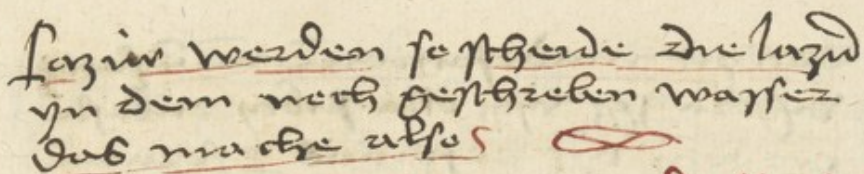 Lazur werden so scheide die lazur
yn dem noch geschreben wasser
das mache also